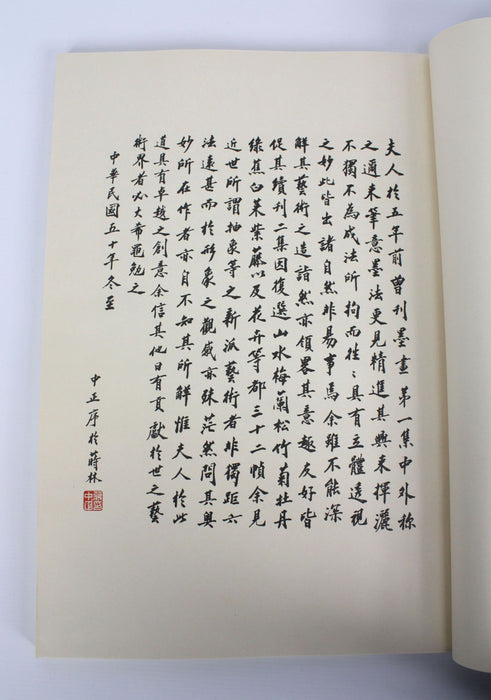 夫人於五年前曾刊墨畫第一集中外称
之邇來筆意墨法更見精進其興來揮灑
不獨不為成法所拘而往々具有立體透視
之妙此皆出諸自然非易事焉余雖不能深
解其藝術之造詣然亦領畧其意趣友好皆
促其續刊二集因復選山水梅蘭松竹菊牡丹
綠蕉白菜紫藤以及花卉等都三十二幀余見
近世所謂抽象等之新派藝術者非獨距六
法遠甚而於形象之觀感亦殊茫然問其奧
妙所在作者亦自不知其所解惟夫人於此
道具有卓越之創意余信其他日有貢獻於世之藝
術界者必大希黽勉之
中華民國五十年冬至
中正序於蔣林